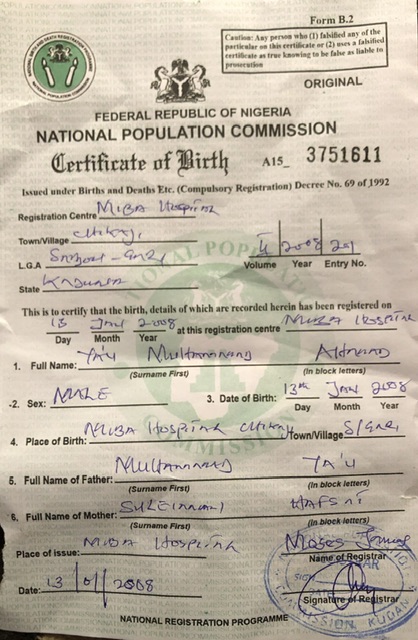 Form B.2
Caution: Any person who (1) falsified any of the
particular on this certificate or (2) uses a falsified
certificate as true knowing to be false as liable to
prosecution
ORIGINAL
FEDERAL REPUBLIC OF NIGERIA
NATIONAL POPULATION COMMISSION
Certificate of Birth A15_ 3751611
Issued under Births and Deaths Etc. (Compulsory Registration) Decree No. 69 of 1992
Registration Centre MUBA Hospital
Town/Village
L.G.A Sabon-Gari 2008 201
Volume Year Entry No.
State Kaduna
This is to certify that the birth, details of which are recorded herein has been registered on
13 Jan 2008 at this registration centre MUBA Hospital
Day Month Year
1. Full Name: Ya'u Muhammad Ahmad
(Surname First) (In block letters)
2. Sex: MALE 3. Date of Birth: 13th Jan 2008
Day Month Year
4. Place of Birth: MUBA Hospital Town/Village S/Gari
5. Full Name of Father: Muhammad Ya'u
(Surname First) (In block letters)
6. Full Name of Mother: Suleiman Hafsat
(Surname First) (In block letters)
Place of issue: MUBA Hospital Moses
Name of Registrar
Date: 13/01/2008
Signature of Registrar
NATIONAL REGISTRATION PROGRAMME